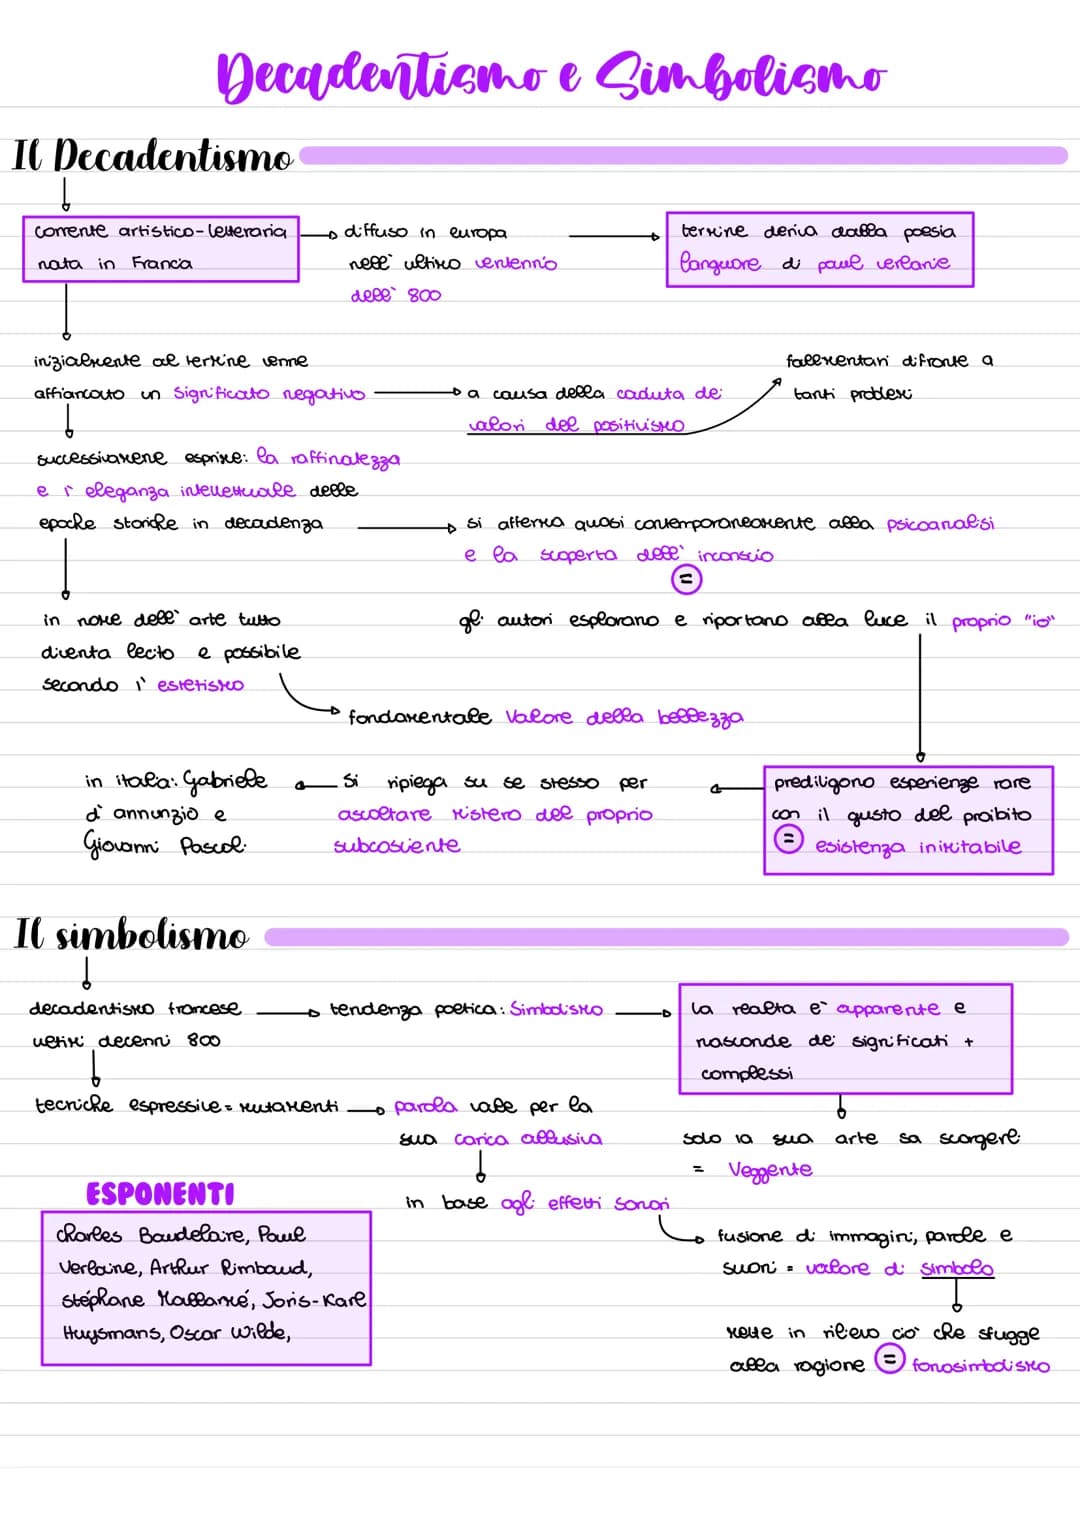 Decadentismo e Simbolismo
Il Decadentismo
corrente artistico-letteraria
nata in Francia
diffuso in europa
nell' ultimo ventennio
dell' 800
termine deriva dalla poesia
languore di paul verlanie
inizialmente al termine venne
affiancato un significato negativo
a causa della caduta dei
valori del positivismo
fallimentari difronte a
tanti problemi
successivamene esprime: la raffinatezza
e l' eleganza intellettuale delle
epoche storiche in decadenza
si afferma quasi contemporaneamente alla psicoanalisi
e la scoperta dell' inconscio
=
gli autori esplorano e riportano alla luce il proprio "io"
in nome dell' arte tutto
diventa lecito e possibile
secondo l' estetismo
fondamentale valore della bellezza
prediligono esperienze rare
con il gusto del proibito
= esistenza inimitabile
si ripiega su se stesso per
ascoltare mistero del proprio
subcosciente
in italia: Gabriele
d' annunzio e
Giovanni Pascoli
Il simbolismo
decadentismo francese
ultimi decenni 800
tendenza poetica: Simbolismo
la realta e` apparente e
nasconde dei significati +
complessi
solo la sua arte sa scorgerli
= Veggente
tecniche espressive = mutamenti
parola vale per la
sua carica allusiva
in base agli effetti sonori
fusione di immagini, parole e
suoni = valore di simbolo
mette in rilievo cio` che sfugge
alla ragione = fonosimbolismo
ESPONENTI
Charles Baudelaire, Paul
Verlaine, Arthur Rimbaud,
Stéphane Mallarmé, Joris-Karl
Huysmans, Oscar Wilde,